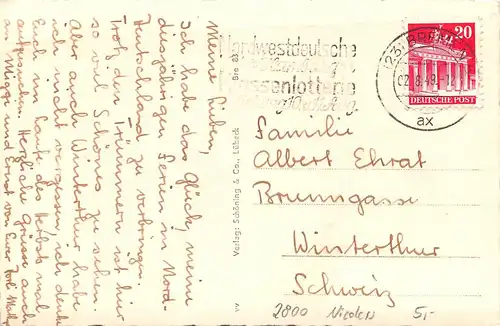 Meine Lieben,
Ich habe das Glück, meine
diesjährigen Ferien in Nord-
deutschland zu verbringen.
Trotz den Trümmern ist hier
so viel Schönes zu sehen.
Aber auch Winterthur habe
ich nicht vergessen, ich denke
Euch im Laufe des Herbsts mal
aufzusuchen. Herzliche Grüsse, auch
an Miggi und Ernst von Euer
Verlag: Schöning & Co., Lübeck
Bre 83
Nordwestdeutsche
Klassenlotterie
(23) BREMEN
02.8.49.-1
ax
20
DEUTSCHE POST
Familie
Albert Ehrat
Brunngasse
Winterthur
Schweiz
2800
5,-